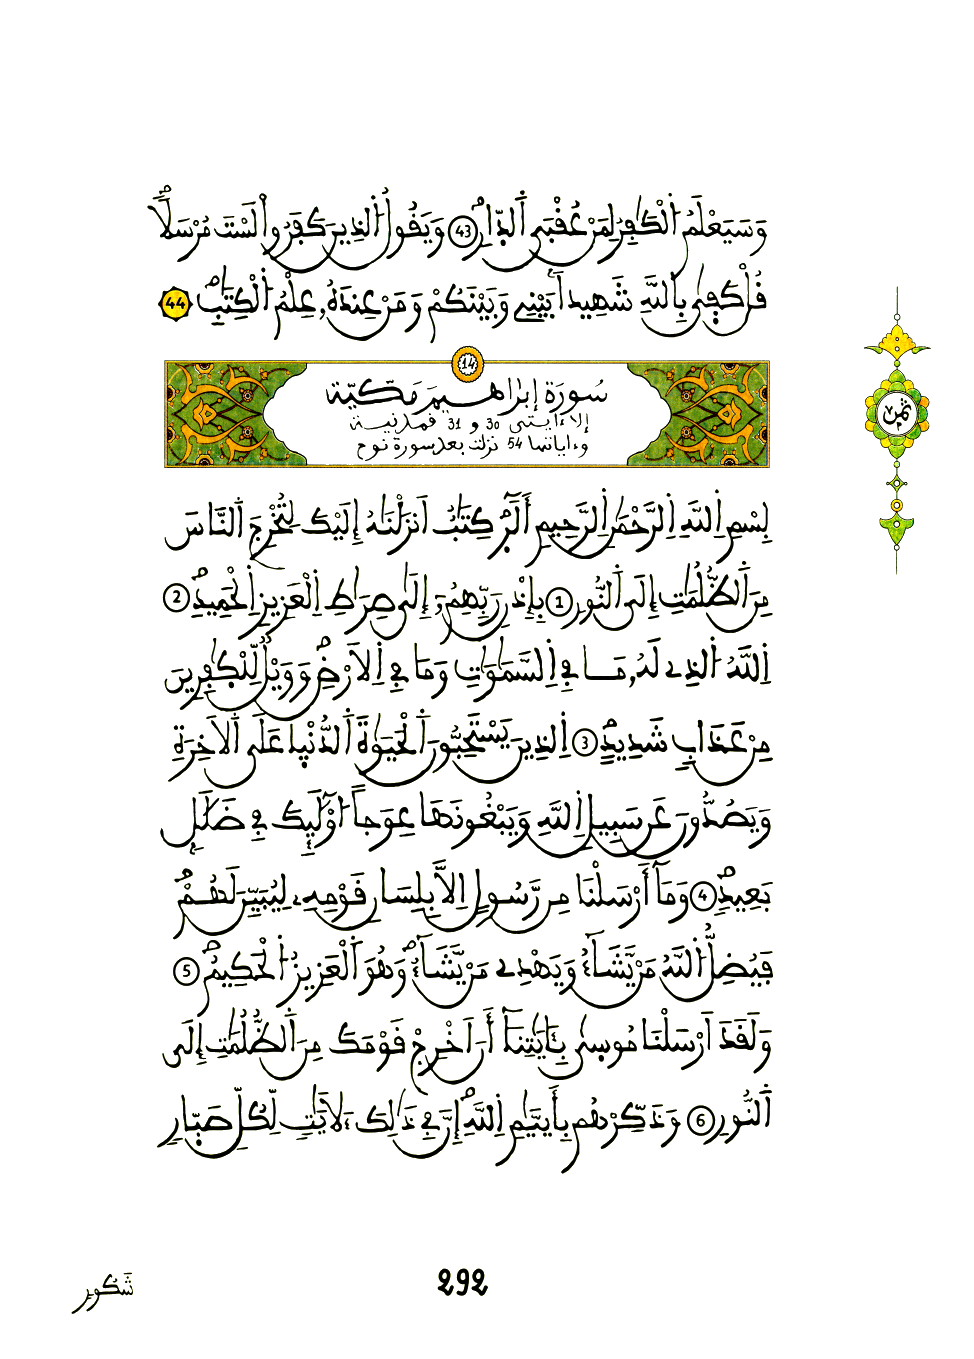 وَسَيَعْلَمُ اُلْكَٰفِرُ لِمَنْ عُقْبَى اَلدّ۪ارِۖ 43 وَيَقُولُ اُلذِينَ كَفَرُواْ لَسْتَ مُرْسَلاٗۖ
قُلْ كَف۪ىٰ بِاللَّهِ شَهِيداَۢ بَيْنِے وَبَيْنَكُمْ وَمَنْ عِندَهُۥ عِلْمُ اُلْكِتَٰبِۖ 44
14
سُورَة إبراهيمَ مَكّيّة
إلا ءايتى 30 و 31 فمدنية
وءاياتها 54 نزلت بعد سورة نوح
بِسْمِ اِللَّهِ اِلرَّحْمَٰنِ اِلرَّحِيمِ أَلَٓر۪ۖ كِتَٰبٌ اَنزَلْنَٰهُ إِلَيْكَ لِتُخْرِجَ اَلنَّاسَ
مِنَ اَلظُّلُمَٰتِ إِلَى اَلنُّورِ 1 بِإِذْنِ رَبِّهِمُۥٓ إِلَىٰ صِرَٰطِ اِلْعَزِيزِ اِلْحَمِيدِۖ 2
اِللَّهُ اُلذِے لَهُۥ مَا فِے اِلسَّمَٰوَٰتِ وَمَا فِے اِلَارْضِۖ وَوَيْلٌ لِّلْكٰ۪فِرِينَ
مِنْ عَذَابٖ شَدِيدٍۖ 3 اِلذِينَ يَسْتَحِبُّونَ اَلْحَيَوٰةَ اَلدُّنْي۪ا عَلَى اَلَاخِرَةِ
وَيَصُدُّونَ عَن سَبِيلِ اِللَّهِ وَيَبْغُونَهَا عِوَجاًۖ ا۟وْلَٰٓئِكَ فِے ضَلَٰلِۢ
بَعِيدٖۖ 4 وَمَآ أَرْسَلْنَا مِن رَّسُولٍ اِلَّا بِلِسَانِ قَوْمِهِۦ لِيُبَيِّنَ لَهُمْۖ
فَيُضِلُّ اُللَّهُ مَنْ يَّشَآءُ وَيَهْدِے مَنْ يَّشَآءُۖ وَهُوَ اَلْعَزِيزُ اُلْحَكِيمُۖ 5
وَلَقَدَ اَرْسَلْنَا مُوس۪ىٰ بِـَٔايَٰتِنَآ أَنَ اَخْرِجْ قَوْمَكَ مِنَ اَلظُّلُمَٰتِ إِلَى
اَلنُّورِ 6 وَذَكِّرْهُم بِأَيَّيٰمِ اِللَّهِۖ إِنَّ فِے ذَٰلِكَ ءَلَايَٰتٖ لِّكُلِّ صَبّ۪ارٖ
ثمن
292
شَكُورٖ